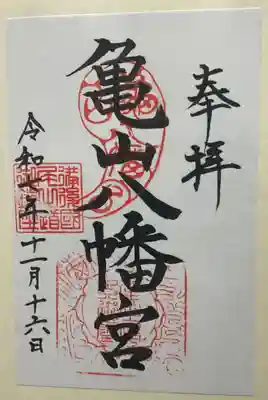 奉拝
亀山八幡宮
令和七年十一月十六日